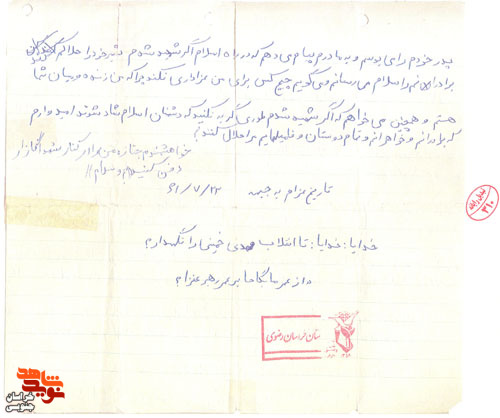 پدر خودم را می بوسم و به مادرم پیام می دهم که در راه اسلام اگر شهید شدم شیر خود را حلالم کند
برادرانم را سلام می رسانم و می گویم هیچ کس برای من عزاداری نکند چرا که من زنده و میان شما
هستم و همچنین می خواهم که اگر شهید شدم طوری گریه نکنید که دشمنان اسلام شاد شوند امیدوارم
که برادرانم و خواهرانم و تمام دوستان و فامیلهایم مرا حلال کنند
خواهشمندم جنازه من را در کنار شهدا
دفن کنید والسلام
تاریخ اعزام به جبهه ۶۱/۷/۲۲
خدایا: خدایا: تا انقلاب مهدی خمینی را نگهدار
و از عمر ما بکاه و بر عمر رهبر افزا
۲۱۰
استان خراسان رضوی
نوید شاهد
خراسان
جنوبی